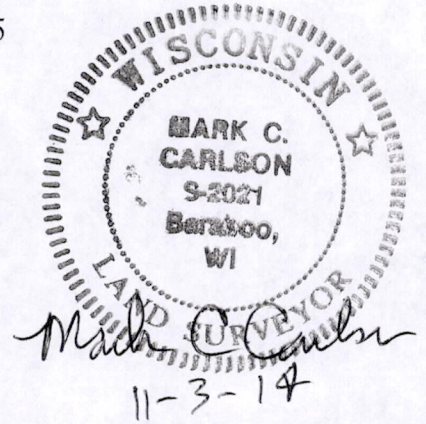 5
WISCONSIN
MARK C.
CARLSON
S-2021
Baraboo,
WI
LAND SURVEYOR
Mark C Carlson
11-3-14